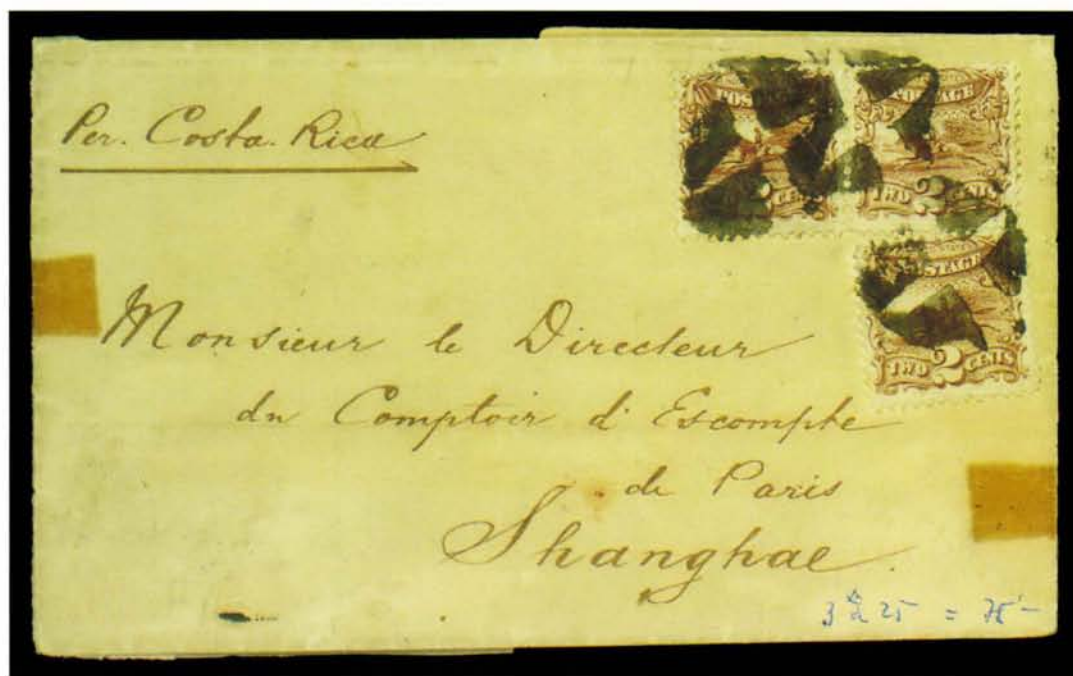 Per. Costa. Rica
POSTAGE
POSTAGE
CENTS
TWO 2 CENTS
POSTAGE
TWO 2 CENTS
Monsieur le Directeur
du Comptoir d'Escompte
de Paris
Shanghae.
3 à 25 = 75 -